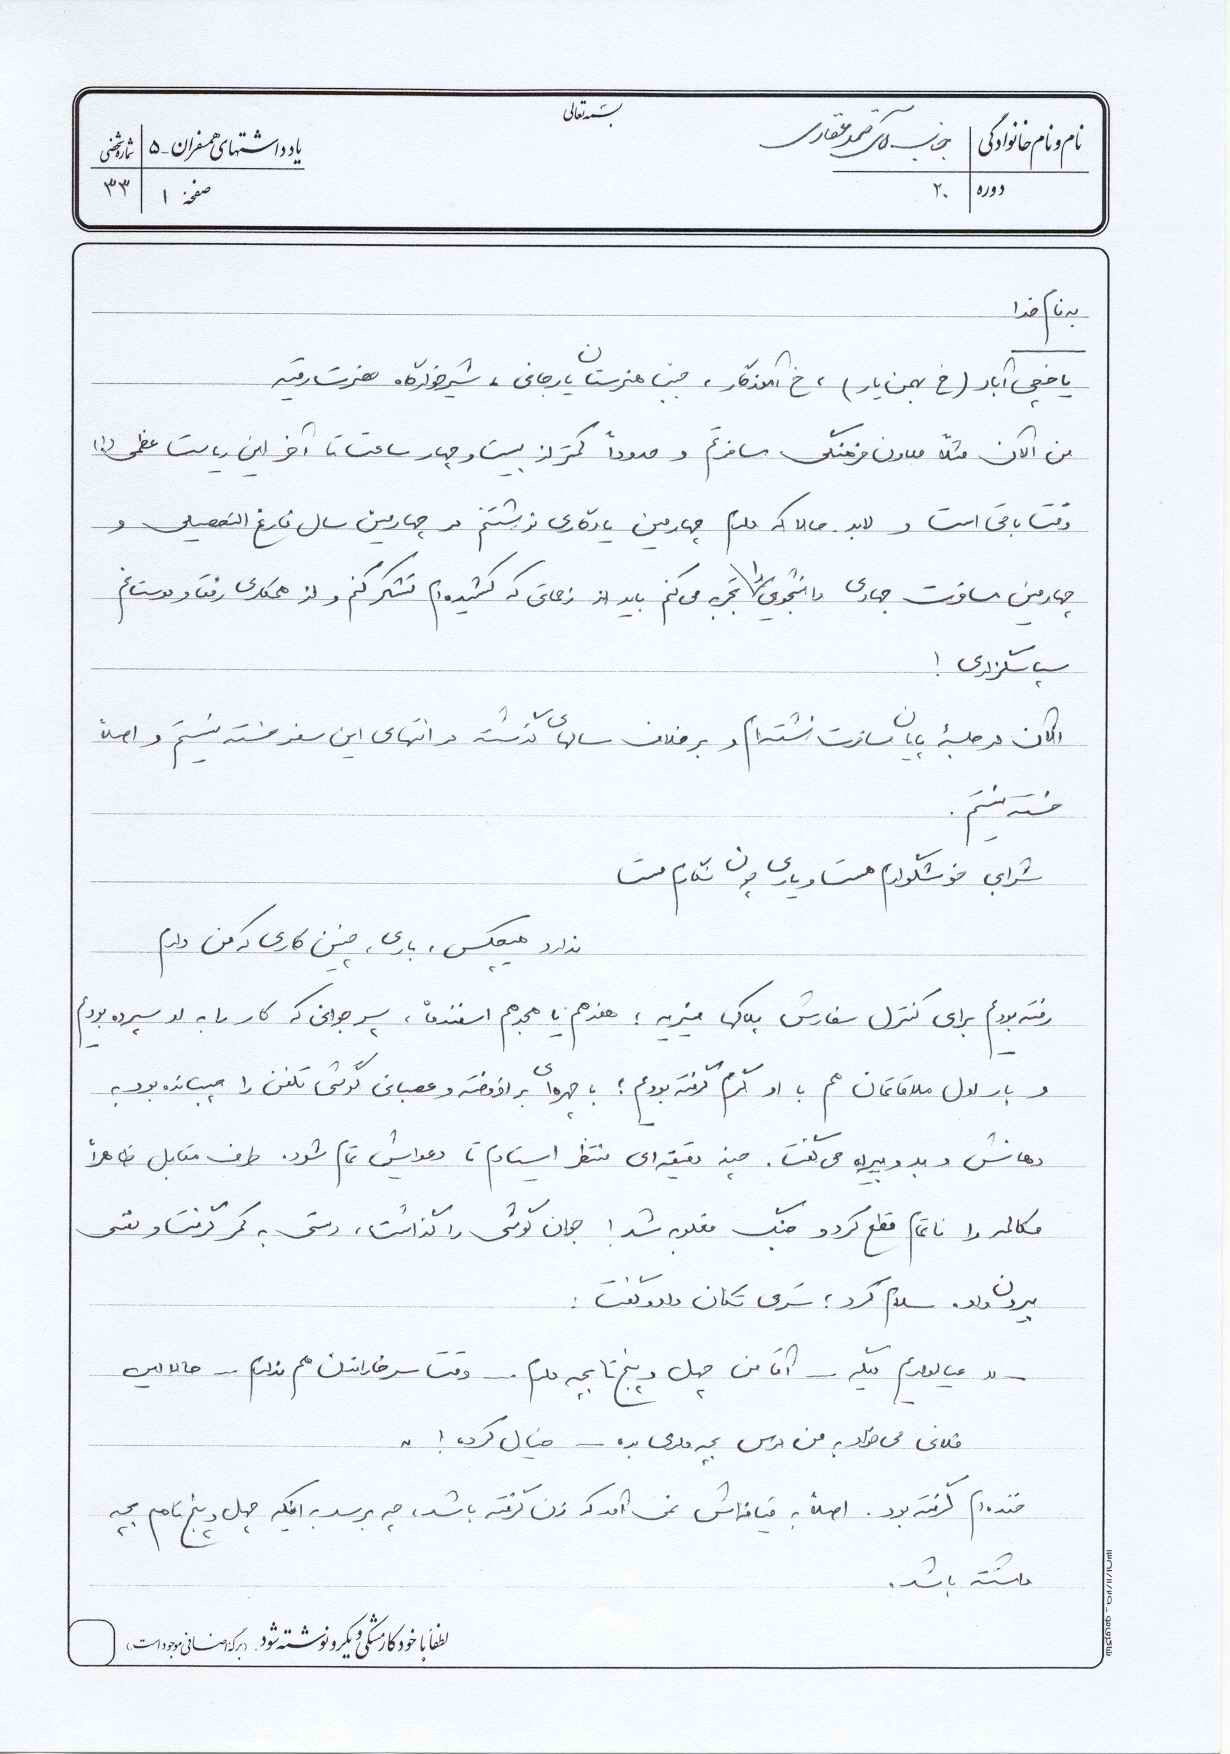 بسمه تعالی
نام و نام خانوادگی جناب آقای صمد غفاری
دوره ۲۰
یادداشتهای همسفران - ۵ شماره شخصی
صفحهٔ ۱ ۳۳
به نام خدا
یاخچی آباد (خ بهمن یار)، خ ، جنب هنرستان یارجانی، شیرخوارگاه حضرت رقیه
من الان مثلاً معاون فرهنگی مسافرتم و حدوداً کمتر از بیست و چهار ساعت تا آخر این ریاست عظمی (!)
وقت باقی است و لابد حالا که دارم چهارمین یادگاری نوشتنم در چهارمین سال فارغ التحصیلی و
چهارمین مسافرت جهادی دانشجویی را تجربه می کنم باید از زحماتی که کشیده ام تشکر کنم و از همکاری رفقا و دوستانم
سپاسگزاری !
الان در جلسهٔ پایان مسافرت نشسته ام و بر خلاف سالهای گذشته در انتهای این سفر خسته نیستم و اصلاً
خسته نیستم .
شرابی خوشگوارم هست و یاری چون نگارم هست
ندارد هیچکس، باری، چنین کاری که من دارم
رفته بودم برای کنترل سفارش پلاکها خیریه ؛ هفدهم یا هجدهم اسفندماه، پسر جوانی که کار را به او سپرده بودیم
و بار اول ملاقاتمان هم با او گرم گرفته بودیم ؛ با چهره ای برافروخته و عصبانی گوشی تلفن را چسبانده بود به
دهانش و بد و بیراه می گفت. چند دقیقه ای منتظر ایستادم تا دعوایش تمام شود. طرف مقابل ظاهراً
مکالمه را ناتمام قطع کرد و جنگ مغلوبه شد! جوان گوشی را گذاشت، دستی به کمر گرفت و نفسی
بیرون داد. سلام کرد ؛ سَری تکان داد و گفت :
ـ « عیالوارم دیگه ـ آقا من چهل و پنج تا بچه دارم ـ وقت سر خاراندن هم ندارم ـ حالا این
فلانی می خواد به من درس بچه داری بده ـ خیال کرده ! »
خنده ام گرفته بود. اصلاً به قیافه اش نمی آمد که زن گرفته باشد، چه برسد به اینکه چهل و پنج تا هم بچه
داشته باشد.
لطفاً با خودکار مشکی و یکرو نوشته شود. (برگه اضافی موجود است)